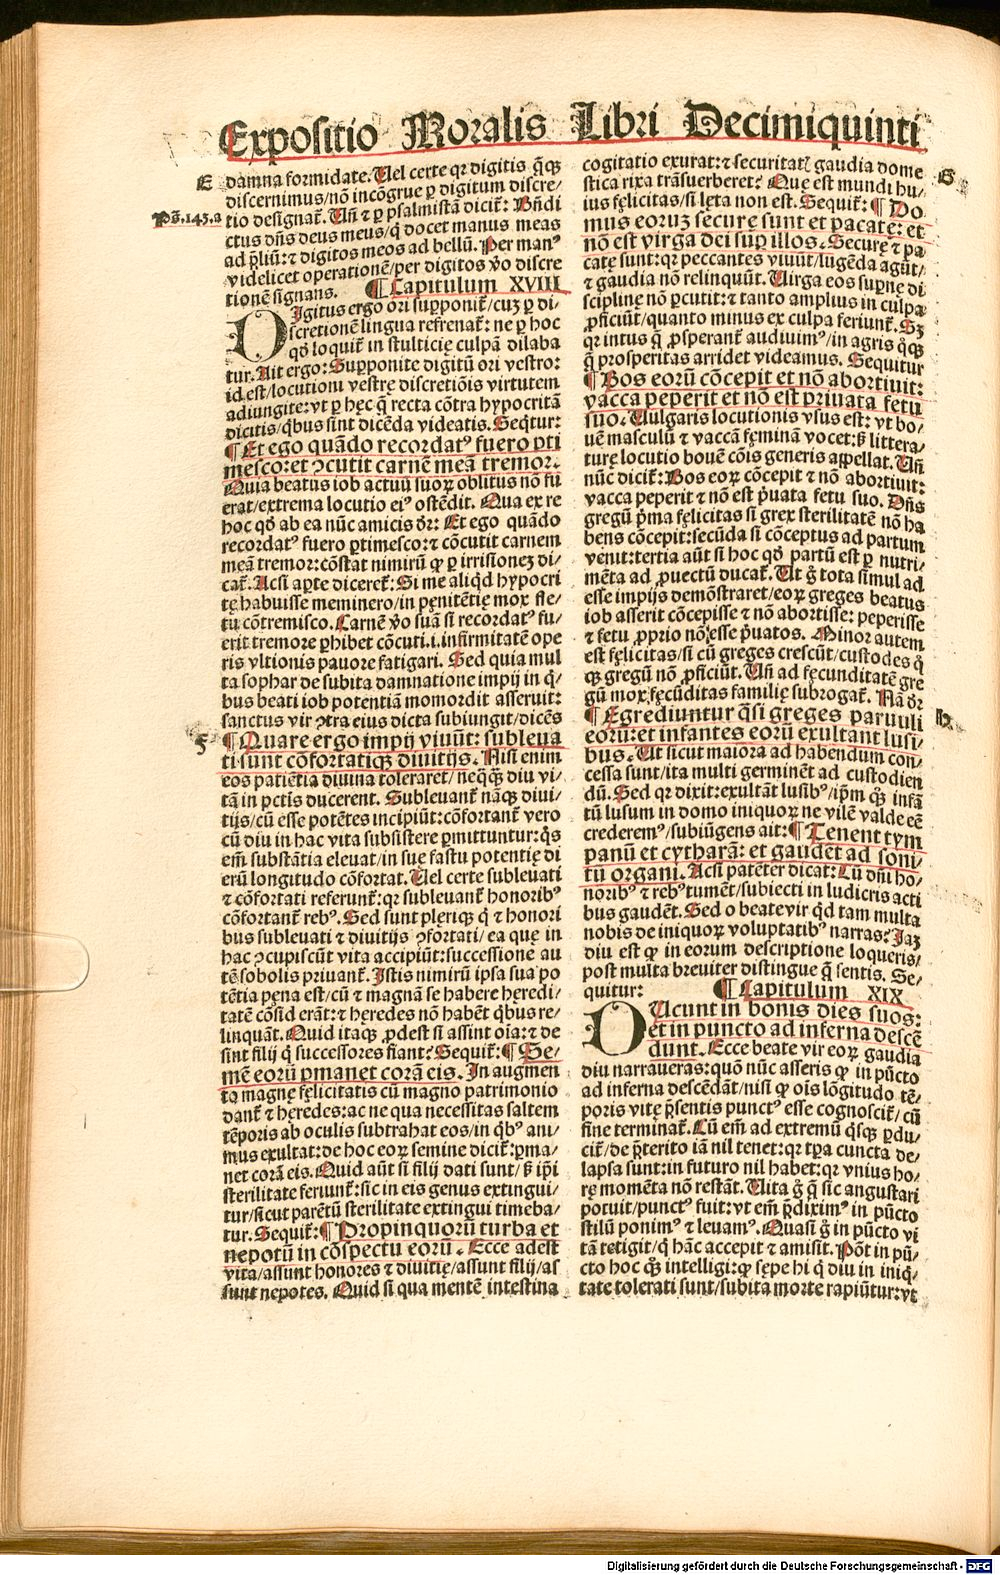 Expositio Moralis Libri Decimiquinti
E
damna formidate. Uel certe qꝛ digitis q̄qꝫ
discernimus/nō incōgrue ꝑ digitum discre/
Pš.143.a
tio designat᷑. Uñ ⁊ ꝑ psalmistā dicit᷑: Bn̄di
ctus dn̄s deus meus/q̇ docet manus meas
ad p̄liū: ⁊ digitos meos ad bellū. Per manꝰ
videlicet operationē/per digitos ꝟo discre
tionē signans. ¶ Capitulum XVIII
Digitus ergo ori supponit᷑/cuꝫ ꝑ di/
scretionē lingua refrenat᷑: ne ꝑ hoc
qḋ loquit᷑ in stulticię culpā dilaba
tur. Ait ergo: Supponite digitū ori vestro:
id est/locutioni vestre discretiōis virtutem
adiungite: vt ꝑ hęc q̄ recta cōtra hypocritā
dicitis/q̇bus sint dicēda videatis. Seq̇tur:
¶ Et ego quādo recordatꝰ fuero pti
mesco: et ↄcutit carnē meā tremor.
Quia beatus iob actuū suoꝝ oblitus nō fu
erat/extrema locutio eiꝰ ostēdit. Qua ex re
hoc qḋ ab ea nūc amicis dr̄: Et ego quādo
recordatꝰ fuero ꝑtimesco: ⁊ cōcutit carnem
meā tremor: cōstat nimirū ꝙ ꝑ irrisioneꝫ di/
cat᷑. Acsi aꝑte diceret᷑: Si me aliq̇d hypocri
tę habuisse meminero/in pęnitētię mox fle/
tū cōtremisco. Carnē ꝟo suā si recordatꝰ fu/
erit tremore ꝓhibet cōcuti.i.infirmitatē ope
ris vltionis pauore fatigari. Sed quia mul
ta sophar de subita damnatione impij in q̇/
bus beati iob potentiā momordit asseruit:
sanctus vir ↄtra eius dicta subiungit/dicēs
F
¶ Quare ergo impij viuūt: subleua
ti sunt cōfortatiqꝫ diuitijs. Nisi enim
eos patiētia diuina toleraret/neq̇qꝫ diu vi/
tā in pctīs ducerent. Subleuant᷑ nāqꝫ diui/
tijs/cū esse potētes incipiūt: cōfortant᷑ vero
cū diu in hac vita subsistere ꝑmittuntur: q̇s
em̄ substātia eleuat/in sue fastu potentię di
erū longitudo cōfortat. Uel certe subleuati
⁊ cōfortati referunt᷑: qꝛ subleuant᷑ honoribꝰ
cōfortant᷑ rebꝰ. Sed sunt plęriqꝫ q̇ ⁊ honori
bus subleuati ⁊ diuitijs ↄfortati/ea quę in
hac ↄcupiscūt vita accipiūt: successione au
tē sobolis priuant᷑. Istis nimirū ipsa sua po
tētia pęna est/cū ⁊ magnā se habere heredi/
tatē cōsiderāt: ⁊ heredes nō habēt q̇bus re/
linquāt. Quid itaqꝫ ꝓdest si assint oīa: ⁊ de
sint filij q̇ successores fiant? Sequit᷑: ¶ Se/
mē eorū ꝑmanet corā eis. In augmen
tū magnę fęlicitatis cū magno patrimonio
dant᷑ ⁊ hęredes: ac ne qua necessitas saltem
tēporis ab oculis subtrahat eos/in q̇bꝰ ani/
mus exultat: de hoc eoꝝ semine dicit᷑: ꝑma/
net corā eis. Quid aūt si filij dati sunt/ß ip̄i
sterilitate feriunt᷑: sic in eis genus extingui/
tur/sicut parētū sterilitate extingui timeba/
tur. Sequit᷑: ¶ Propinquorū turba et
nepotū in cōspectu eorū. Ecce adest
vita/assunt honores ⁊ diuitię/assunt filij/as
sunt nepotes. Quid si qua mentē intestina
cogitatio exurat: ⁊ securitatꝭ gaudia dome
G
stica rixa trāsuerberet? Quę est mundi hu/
ius fęlicitas/si lęta non est. Sequit᷑: ¶ Do
mus eoruꝫ secure sunt et pacatę: et
nō est virga dei suꝑ illos. Securę ⁊ pa
catę sunt: qꝛ peccantes viuūt/lugēda agūt/
⁊ gaudia nō relinquūt. Uirga eos supnę di
sciplinę nō ꝑcutit: ⁊ tanto amplius in culpa
ꝓficiūt/quanto minus ex culpa feriunt᷑. Sꝫ
qꝛ intus q̄ ꝓsperant᷑ audiuimꝰ/in agris q̇qꝫ
q̄ ꝓsperitas arridet videamus. Sequitur
¶ Bos eorū cōcepit et nō abortiuit:
vacca peperit et nō est priuata fetu
suo. Uulgaris locutionis vsus est: vt bo/
uē masculū ⁊ vaccā fęminā vocet: ß littera/
turę locutio bouē cōis generis appellat. Uñ
nūc dicit᷑: Bos eoꝝ cōcepit ⁊ nō abortiuit:
vacca peperit ⁊ nō est p̄uata fetu suo. Dn̄s
gregū p̄ma fęlicitas si grex sterilitatē nō ha
bens cōcepit: secūda si cōceptus ad partum
venit: tertia aūt si hoc qḋ partū est ꝑ nutri/
mēta ad ꝓuectū ducat᷑. Ut g̊ tota simul ad
esse impijs demōstraret/eoꝝ greges beatus
iob asserit cōcepisse ⁊ nō abortisse: peperisse
⁊ fetu ꝓprio nō esse p̄uatos. Minor autem
est fęlicitas/si cū greges crescūt/custodes q̇
qꝫ gregū nō ꝓficiūt. Uñ ad fęcunditatē gre
gū mox fęcūditas familię subrogat᷑. Nā dr̄
H
¶ Egrediuntur q̄si greges paruuli
eorū: et infantes eorū exultant lusi/
bus. Ut sicut maiora ad habendum con/
cessa sunt/ita multi germinēt ad custodien
dū. Sed qꝛ dixit: exultāt lusibꝰ/ip̄m q̇qꝫ infā
tū lusum in domo iniquoꝝ ne vilē valde eē
crederemꝰ/subiūgens ait: ¶ Tenent tym
panū et cytharā: et gaudēt ad soni/
tū organi. Acsi patēter dicat: Cū dn̄i ho/
noribꝰ ⁊ rebꝰ tumēt/subiecti in ludicris acti
bus gaudēt. Sed o beate vir q̇d tam multa
nobis de iniquoꝝ voluptatibꝰ narras? Jaꝫ
diu est ꝙ in eorum descriptione loqueris/
post multa breuiter distingue q̄ sentis. Se/
quitur: ¶ Capitulum XIX
Ducunt in bonis dies suos:
et in puncto ad inferna descē
dunt. Ecce beate vir eoꝝ gaudia
diu narraueras: quō nūc asseris ꝙ in pūcto
ad inferna descēdāt/nisi ꝙ oīs lōgitudo tē/
poris vitę p̄sentis punctꝰ esse cognoscit᷑/cū
fine terminat᷑. Cū em̄ ad extremū q̇sqꝫ ꝑdu/
cit᷑/de p̄terito iā nil tenet: qꝛ tꝑa cuncta de/
lapsa sunt: in futuro nil habet: qꝛ vnius ho/
rę momēta nō restāt. Uita g̊ q̄ sic angustari
potuit/punctꝰ fuit: vt em̄ p̄diximꝰ in pūcto
stilū ponimꝰ ⁊ leuamꝰ. Quasi g̊ in pūcto vi
tā tetigit/q̇ hāc accepit ⁊ amisit. Pōt in pū/
cto hoc q̇qꝫ intelligi: ꝙ sępe hi q̇ diu in iniq̇/
tate tolerati sunt/subita morte rapiūtur: vt
Digitalisierung gefördert durch die Deutsche Forschungsgemeinschaft - DFG